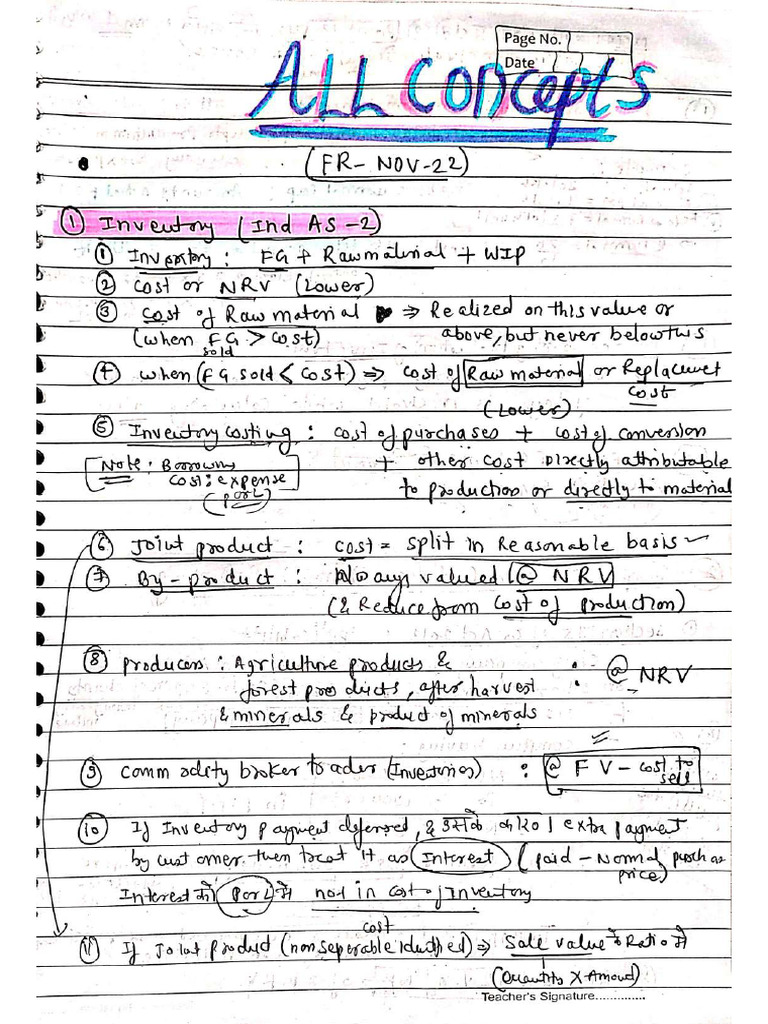 Page No.
Date
ALL CONCEPTS
(FR- NOV-22)
① Inventory (Ind AS -2)
① Inventory : FG + Raw material + WIP
② Cost or NRV (Lower)
③ Cost of Raw material ⇒ Realized on this value or
(when FG > cost) above, but never below this
sold
④ when (FG sold < cost) ⇒ cost of Raw material or Replacement
cost
(Lower)
⑤ Inventory costing : cost of purchases + cost of conversion
Note : Borrowing + other cost Directly attributable
cost : expense to production or directly to material
(PorL)
⑥ Joint product : cost = split in Reasonable basis
⑦ By-product : Always valued @ NRV
(& Reduce from cost of production)
⑧ Producers : Agriculture products &
forest products, after harvest : @ NRV
& minerals & product of minerals
⑨ Commodity broker trader (Inventories) : @ FV - cost to
sell
⑩ If Inventory payment deferred, & उसके कारण extra payment
by customer then treat it as Interest (paid - Normal
price)
Interest को PorL में not in cost of Inventory
cost
⑪ If Joint Product (non seperable identified) ⇒ Sale value के Ratio में
(Quantity X Amount)
Teacher's Signature..............